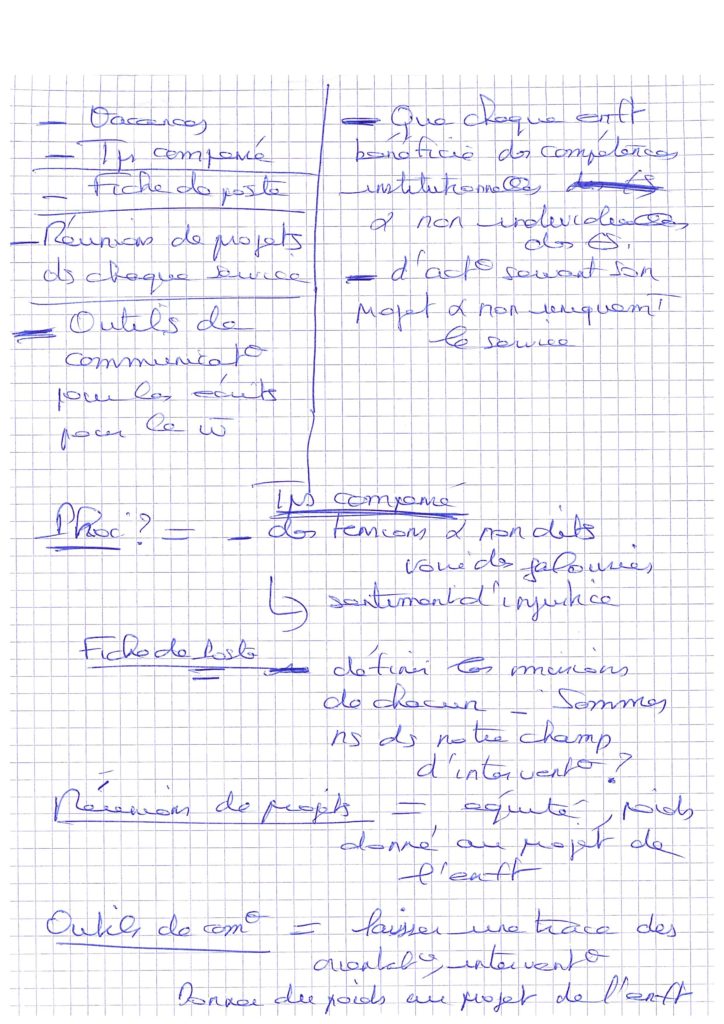 - Vacances
- Tps comparé
- Fiche de poste
- Réunions de projets
ds chaque service
- Outils de
communicat°
pour les écrits
pour le w
- Que chaque enft
bénéficie des compétences
institutionnelles
& non individuelles
des
- d'act° suivant son
projet & non uniquemt
le service
Tps comparé
? = - des tensions & non dits
voire des jalousies
↳ sentiment d'injustice
Fiche de Poste = - définir les missions
de chacun - Sommes
ns ds notre champ
d'intervent° ?
Réunions de projets = équité, poids
donné au projet de
l'enft
Outils de com° = laisser une trace des
orientat°, intervent°
Donner du poids au projet de l'enft